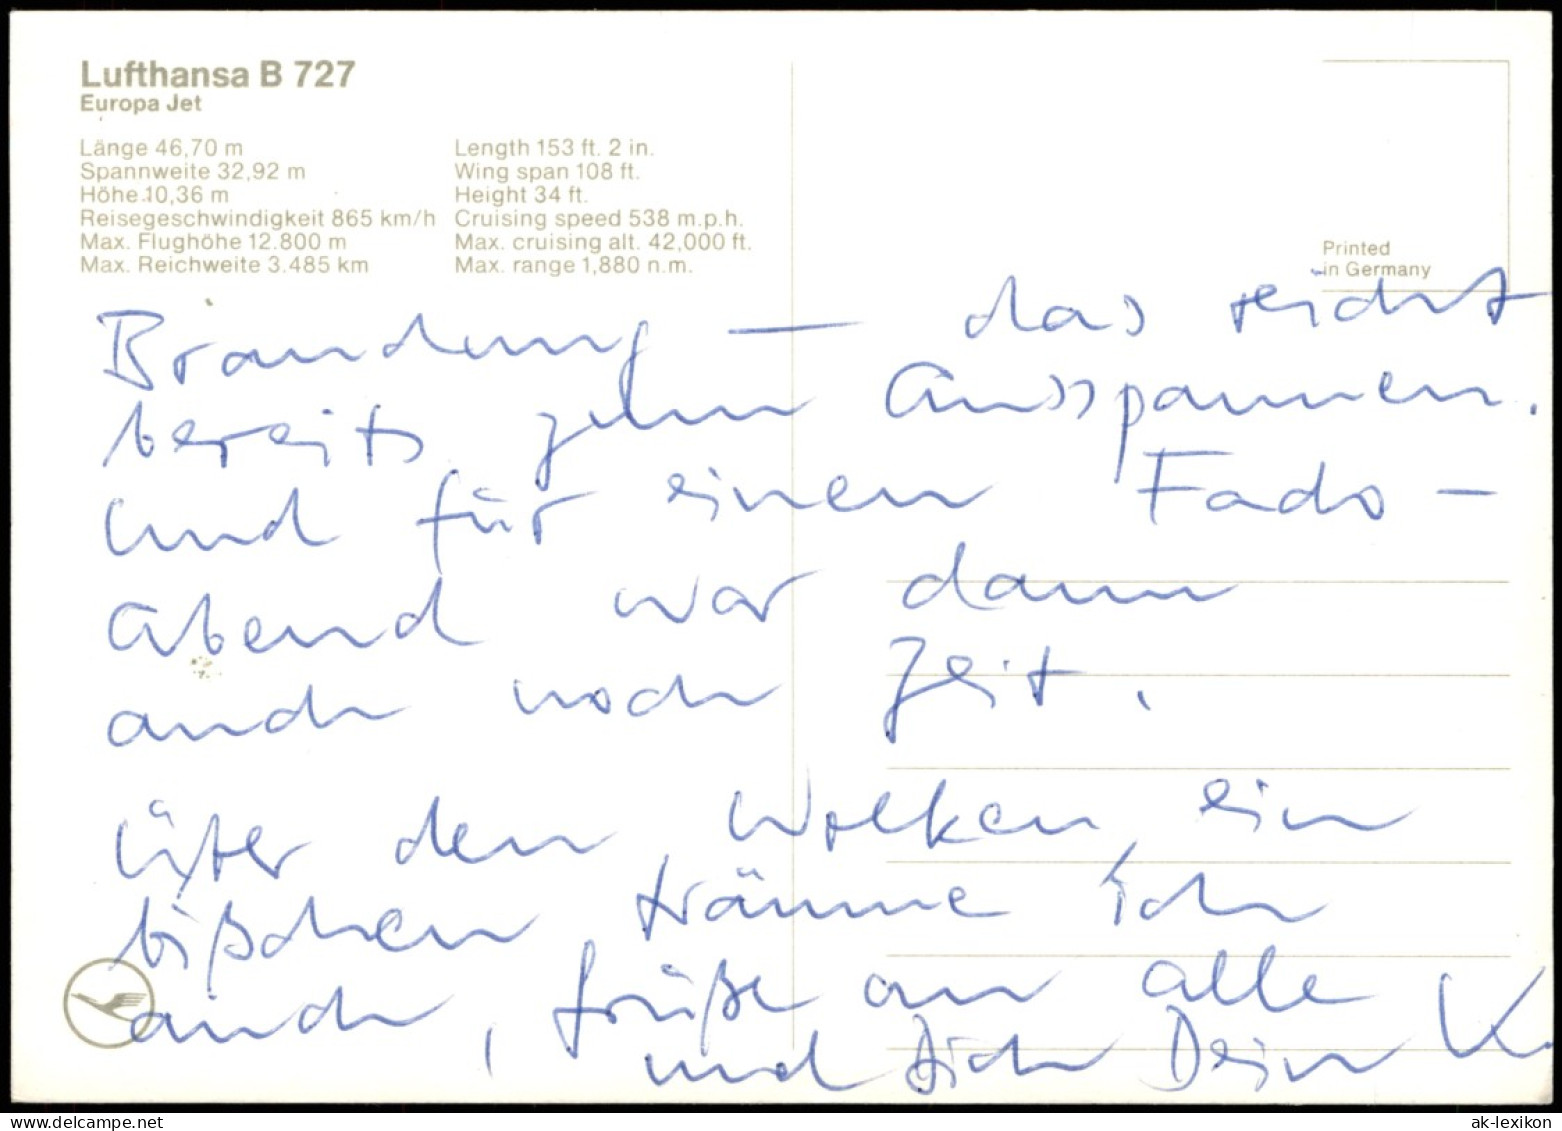 Lufthansa B 727
Europa Jet
Länge 46,70 m
Spannweite 32,92 m
Höhe 10,36 m
Reisegeschwindigkeit 865 km/h
Max. Flughöhe 12.800 m
Max. Reichweite 3.485 km
Length 153 ft. 2 in.
Wing span 108 ft.
Height 34 ft.
Cruising speed 538 m.p.h.
Max. cruising alt. 42,000 ft.
Max. range 1,880 n.m.
Printed
in Germany
Brandung – das reicht
bereits zum Ausspannen.
Und für einen Fado-
abend war dann
auch noch Zeit.
Über den Wolken, ein
bißchen träume ich
auch, Grüße an alle
und Dich Dein K.
ak-lexikon